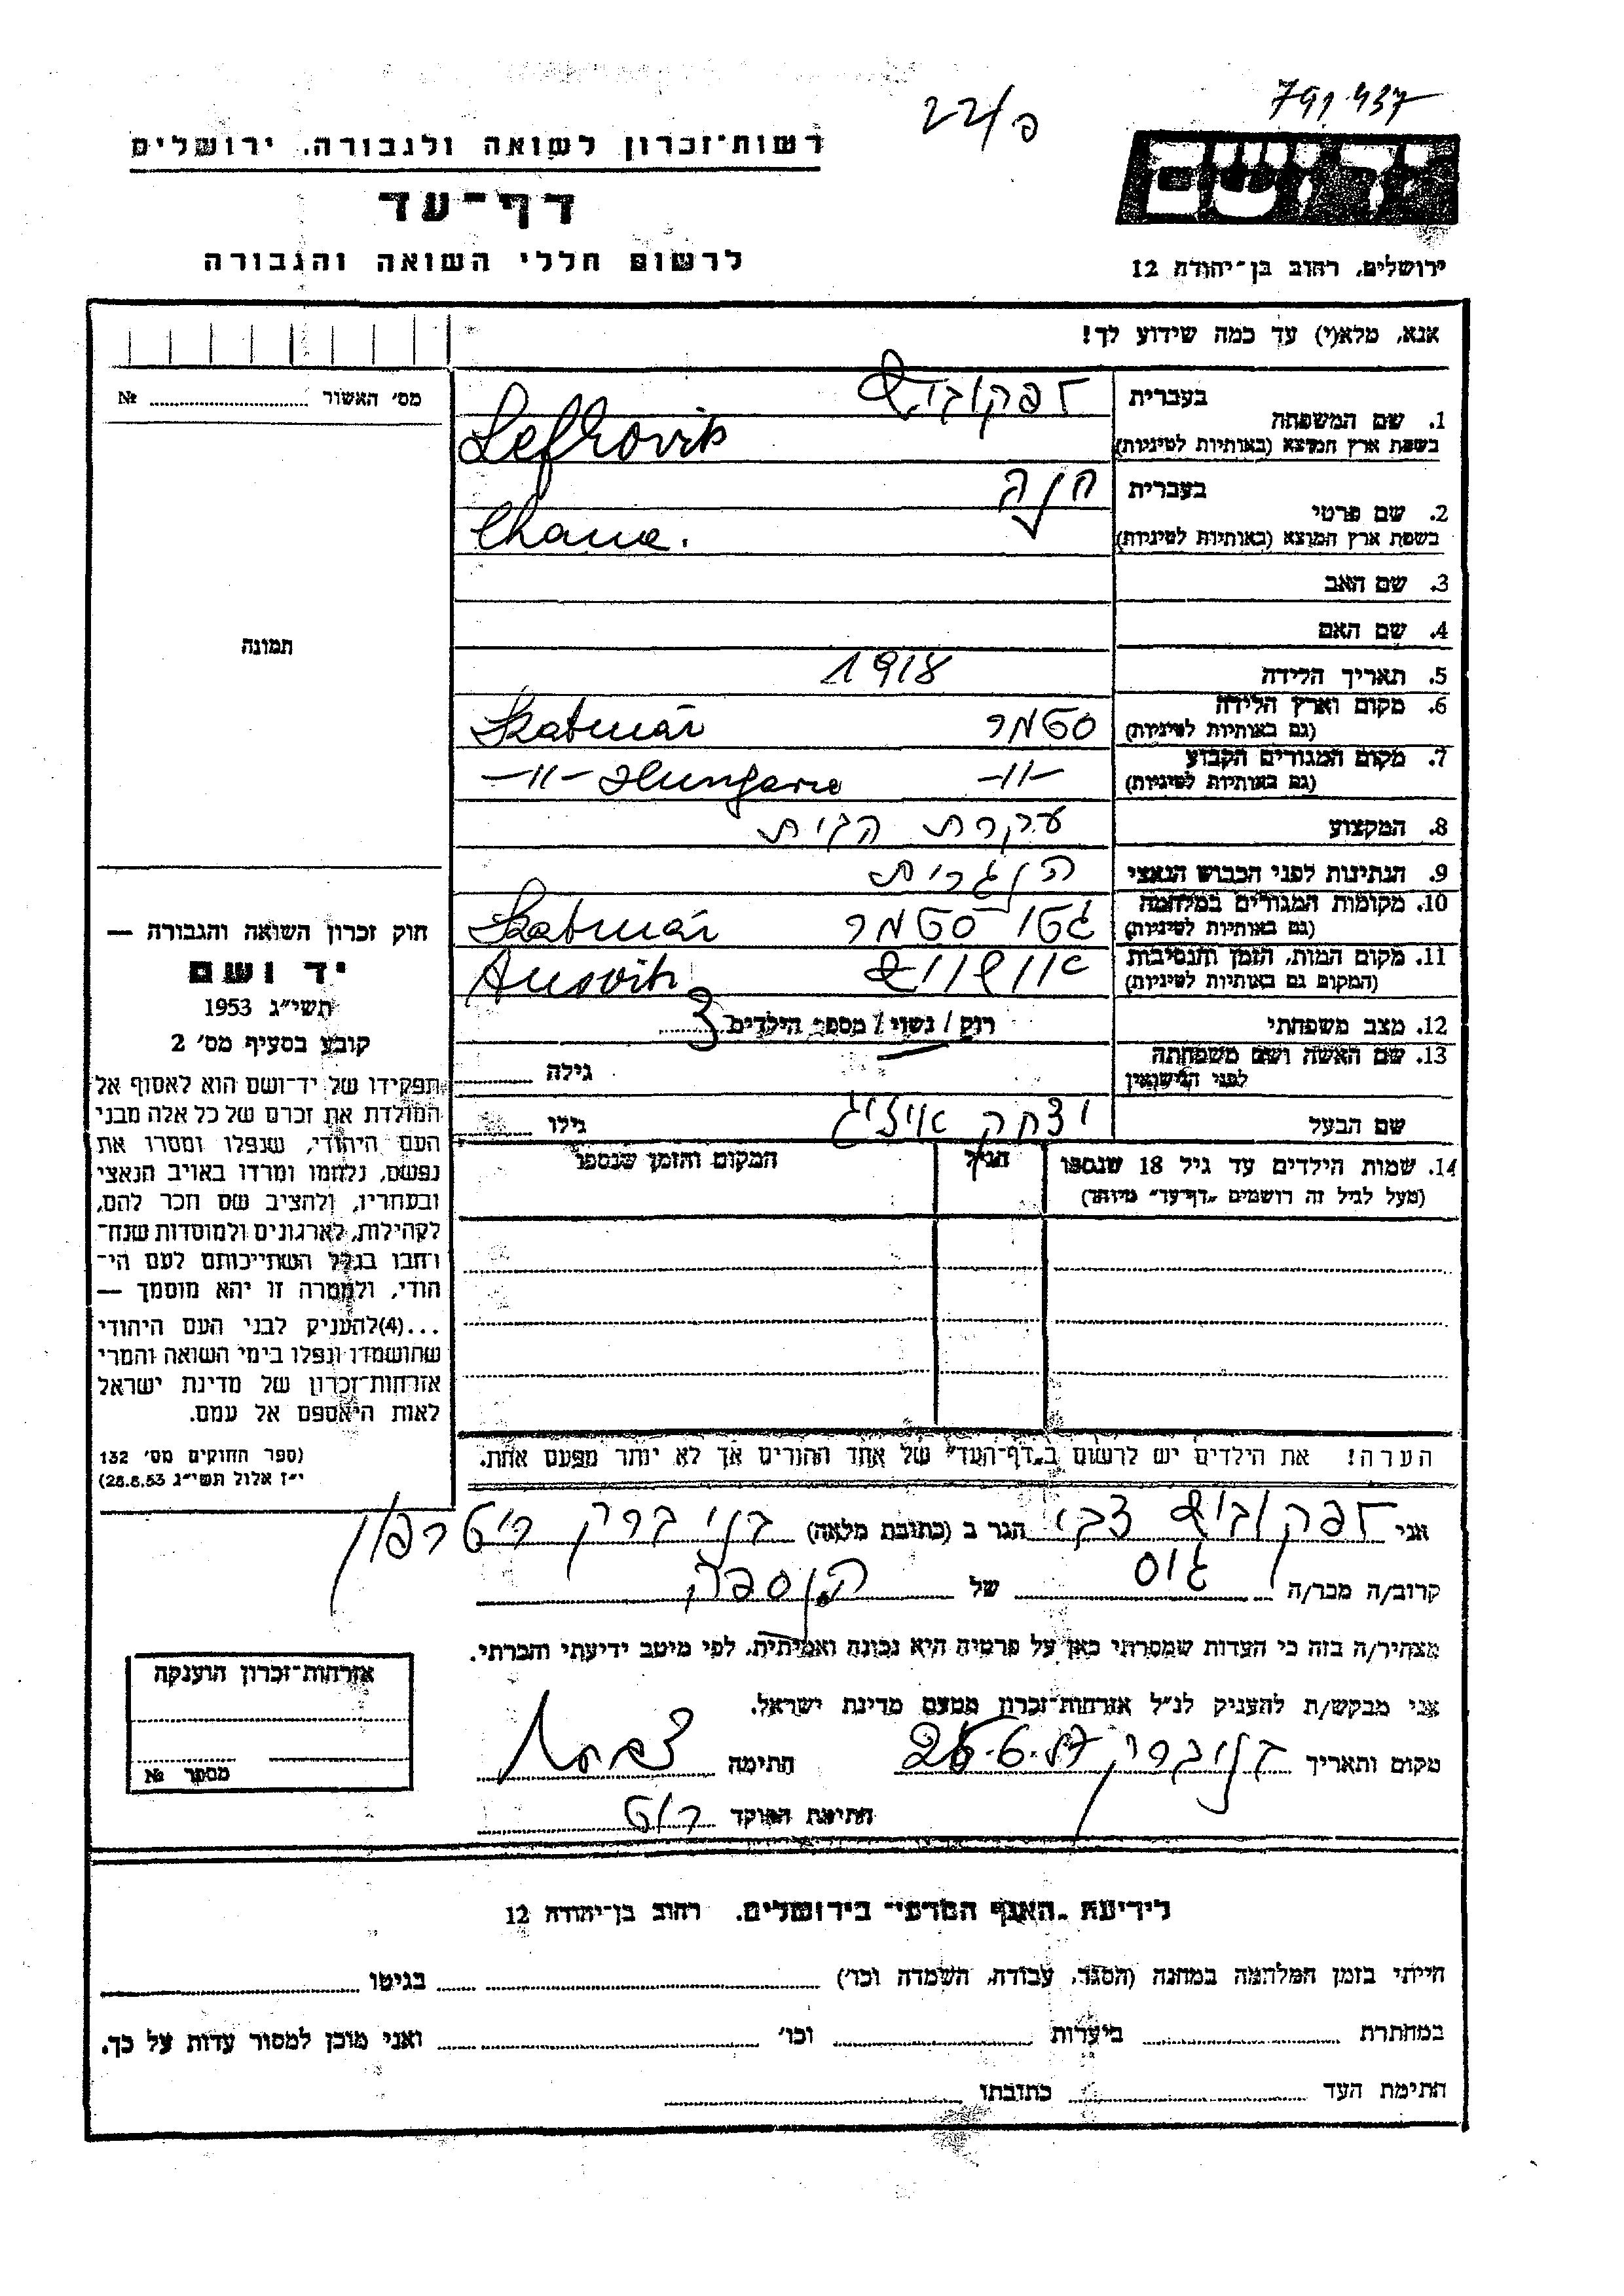 791437
פ/22
רשות־זכרון לשואה ולגבורה. ירושלים
יד ושם
דף־עד
לרשום חללי השואה והגבורה
ירושלים, רחוב בן־יהודה 12
אנא, מלא(י) עד כמה שידוע לך!
מס׳ האשור ........ №
1. שם המשפחה
בעברית לפקוביץ
בשפת ארץ המוצא (באותיות לטיניות) Lefkovits
2. שם פרטי
בעברית חנה
בשפת ארץ המוצא (באותיות לטיניות) Chana.
3. שם האב
4. שם האם
תמונה
5. תאריך הלידה 1918
6. מקום וארץ הלידה (גם באותיות לטיניות) סטמר Szatmár
7. מקום המגורים הקבוע (גם באותיות לטיניות) -11- -11- Hungaria
8. המקצוע עקרת הבית
9. הנתינות לפני הכבוש הנאצי הונגרית
10. מקומות המגורים במלחמה (גם באותיות לטיניות) גטו סטמר Szatmár
11. מקום המות, הזמן והנסיבות (המקום גם באותיות לטיניות) אושוויץ Ausvitz
12. מצב משפחתי רוק / נשוי / מספר הילדים 3
13. שם האשה ושם משפחתה לפני הנישואין גילה
שם הבעל יצחק אייזיג גילו
14. שמות הילדים עד גיל 18 שנספו
(מעל לגיל זה רושמים „דף־עד״ מיוחד)
הגיל
המקום והזמן שנספו
חוק זכרון השואה והגבורה —
יד ושם
תשי״ג 1953
קובע בסעיף מס׳ 2
תפקידו של יד־ושם הוא לאסוף אל
המולדת את זכרם של כל אלה מבני
העם היהודי, שנפלו ומסרו את
נפשם, נלחמו ומרדו באויב הנאצי
ובעוזריו, ולהציב שם וזכר להם,
לקהילות, לארגונים ולמוסדות שנח־
רבו בגלל השתייכותם לעם הי־
הודי, ולמטרה זו יהא מוסמך —
...(4)להעניק לבני העם היהודי
שהושמדו ונפלו בימי השואה והמרי
אזרחות־זכרון של מדינת ישראל
לאות היאספם אל עמם.
(ספר החוקים מס׳ 132
י״ז אלול תשי״ג 28.8.53)
הערה! את הילדים יש לרשום ב„דף־העד״ של אחד ההורים אך לא יותר מפעם אחת.
אני לפקוביץ צבי הגר ב (כתובת מלאה) בני ברק ר׳ טרפון
קרוב/ה מכר/ה גיס של הנספה
מצהיר/ה בזה כי העדות שמסרתי כאן על פרטיה היא נכונה ואמיתית, לפי מיטב ידיעתי והכרתי.
אני מבקש/ת להעניק לנ״ל אזרחות־זכרון מטעם מדינת ישראל.
מקום ותאריך בני ברק חתימה
חתימת הפוקד
אזרחות־זכרון הוענקה
מספר №
לידיעת „האגף המדעי״ בירושלים. רחוב בן־יהודה 12
הייתי בזמן המלחמה במחנה (הסגר, עבודה, השמדה וכו׳) בגיטו
במחתרת ביערות וכו׳ ואני מוכן למסור עדות על כך.
חתימת העד כתובתו